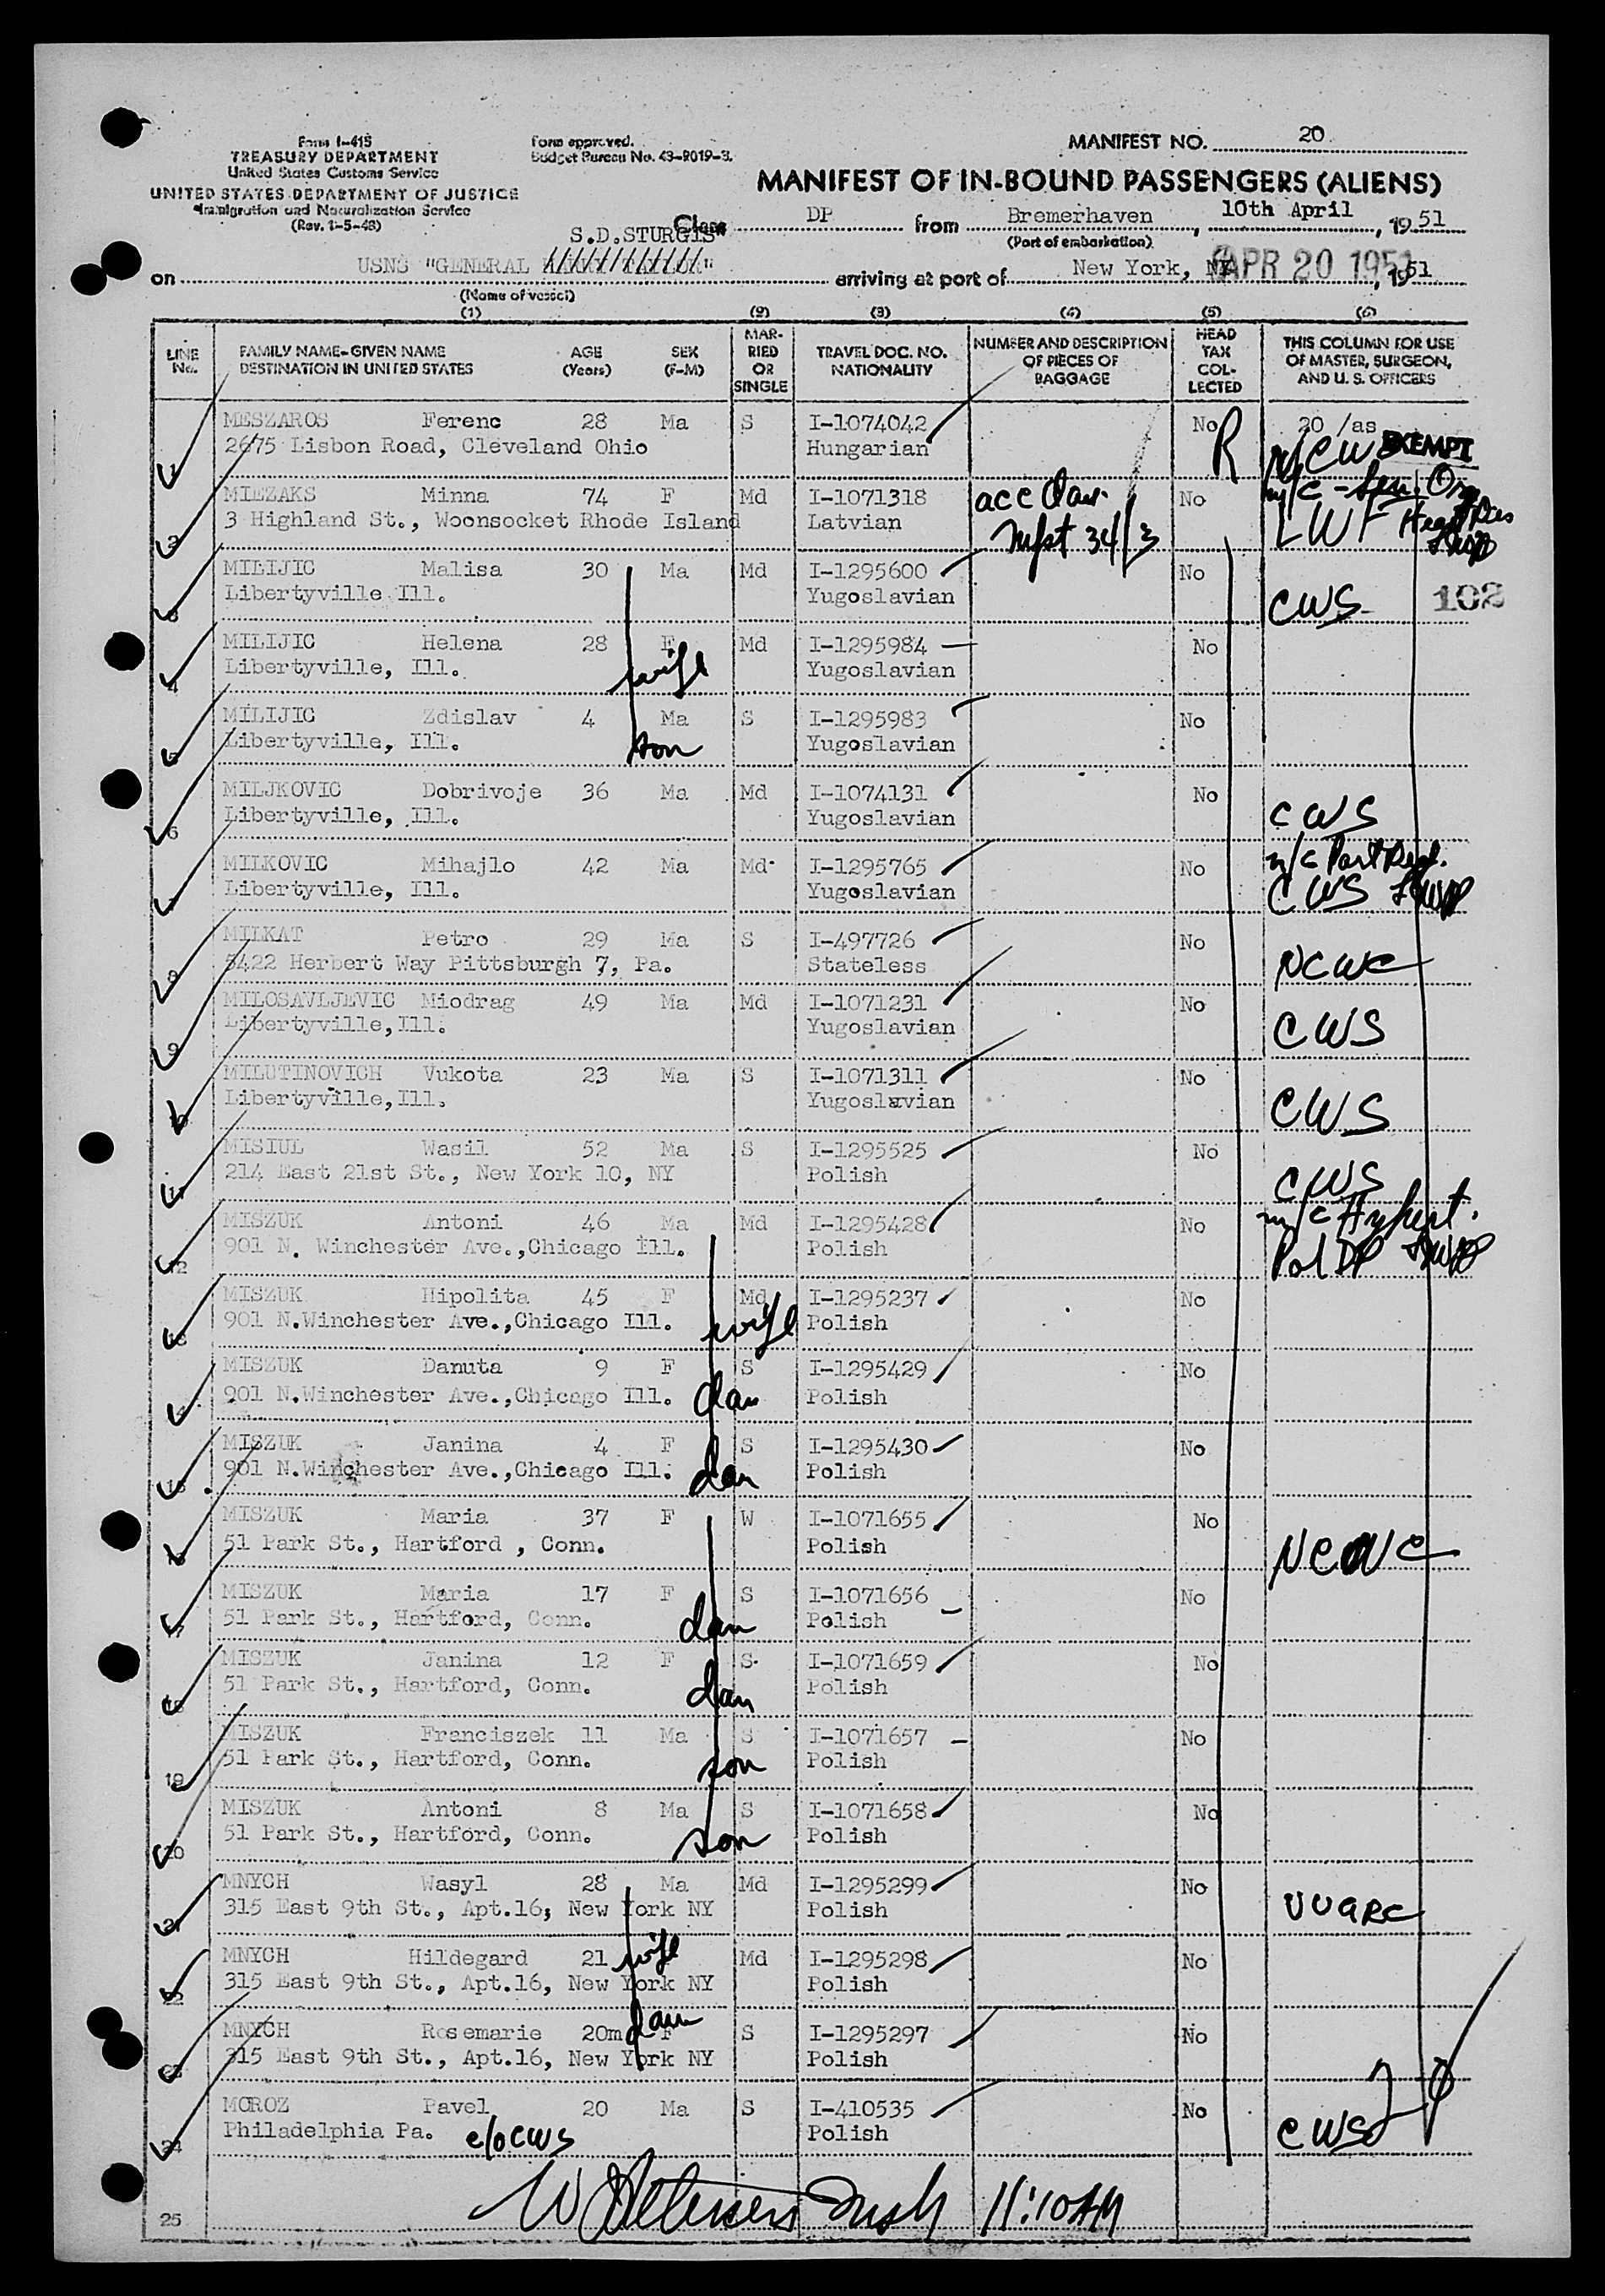 Form I-415
TREASURY DEPARTMENT
United States Customs Service
UNITED STATES DEPARTMENT OF JUSTICE
Immigration and Naturalization Service
(Rev. 1-5-48)
Form approved.
Budget Bureau No. 43-R019-3.
MANIFEST NO. 20
MANIFEST OF IN-BOUND PASSENGERS (ALIENS)
Class DP from Bremerhaven, 10th April, 1951
(Port of embarkation)
S.D.STURGIS"
on USNS "GENERAL arriving at port of New York, NY APR 20 1951, 1951
(Name of vessel)
(1) (2) (3) (4) (5) (6)
LINE No. FAMILY NAME-GIVEN NAME DESTINATION IN UNITED STATES AGE (Years) SEX (F-M) MARRIED OR SINGLE TRAVEL DOC. NO. NATIONALITY NUMBER AND DESCRIPTION OF PIECES OF BAGGAGE HEAD TAX COLLECTED THIS COLUMN FOR USE OF MASTER, SURGEON, AND U. S. OFFICERS
MESZAROS Ferenc 28 Ma S I-1074042 No R 20 /as
1 2675 Lisbon Road, Cleveland Ohio Hungarian CWS EXEMPT
MIEZAKS Minna 74 F Md I-1071318 acc dau. No m/c - Sen.
2 3 Highland St., Woonsocket Rhode Island Latvian Mfst 34/3 LWF
MILIJIC Malisa 30 Ma Md I-1295600 No
3 Libertyville Ill. Yugoslavian CWS 102
MILIJIC Helena 28 F wife Md I-1295984 No
4 Libertyville, Ill. Yugoslavian
MILIJIC Zdislav 4 Ma S I-1295983 No
5 Libertyville, Ill. son Yugoslavian
MILJKOVIC Dobrivoje 36 Ma Md I-1074131 No
6 Libertyville, Ill. Yugoslavian CWS
MILKOVIC Mihajlo 42 Ma Md I-1295765 No m/c
7 Libertyville, Ill. Yugoslavian CWS
MILKAT Petro 29 Ma S I-497726 No
8 5422 Herbert Way Pittsburgh 7, Pa. Stateless NCWC
MILOSAVLJEVIC Miodrag 49 Ma Md I-1071231 No
9 Libertyville,Ill. Yugoslavian CWS
MILUTINOVICH Vukota 23 Ma S I-1071311 No
10 Libertyville,Ill. Yugoslavian CWS
MISIUL Wasil 52 Ma S I-1295525 No
11 214 East 21st St., New York 10, NY Polish CWS
MISZUK Antoni 46 Ma Md I-1295428 No m/c Hypert.
12 901 N. Winchester Ave.,Chicago Ill. Polish Pol DP
MISZUK Hipolita 45 F Md I-1295237 No
13 901 N.Winchester Ave.,Chicago Ill. wife Polish
MISZUK Danuta 9 F S I-1295429 No
14 901 N.Winchester Ave.,Chicago Ill. dau Polish
MISZUK Janina 4 F S I-1295430 No
15 901 N.Winchester Ave.,Chicago Ill. dau Polish
MISZUK Maria 37 F W I-1071655 No
16 51 Park St., Hartford , Conn. Polish NCWC
MISZUK Maria 17 F S I-1071656 No
17 51 Park St., Hartford, Conn. dau Polish
MISZUK Janina 12 F S I-1071659 No
18 51 Park St., Hartford, Conn. dau Polish
MISZUK Franciszek 11 Ma S I-1071657 No
19 51 Park St., Hartford, Conn. son Polish
MISZUK Antoni 8 Ma S I-1071658 No
20 51 Park St., Hartford, Conn. son Polish
MNYCH Wasyl 28 Ma Md I-1295299 No
21 315 East 9th St., Apt.16, New York NY Polish UUARC
MNYCH Hildegard 21 wife Md I-1295298 No
22 315 East 9th St., Apt.16, New York NY Polish
MNYCH Rosemarie 20m dau F S I-1295297 No
23 315 East 9th St., Apt.16, New York NY Polish
MOROZ Pavel 20 Ma S I-410535 No
24 Philadelphia Pa. c/o CWS Polish CWS
25 11:10 AM